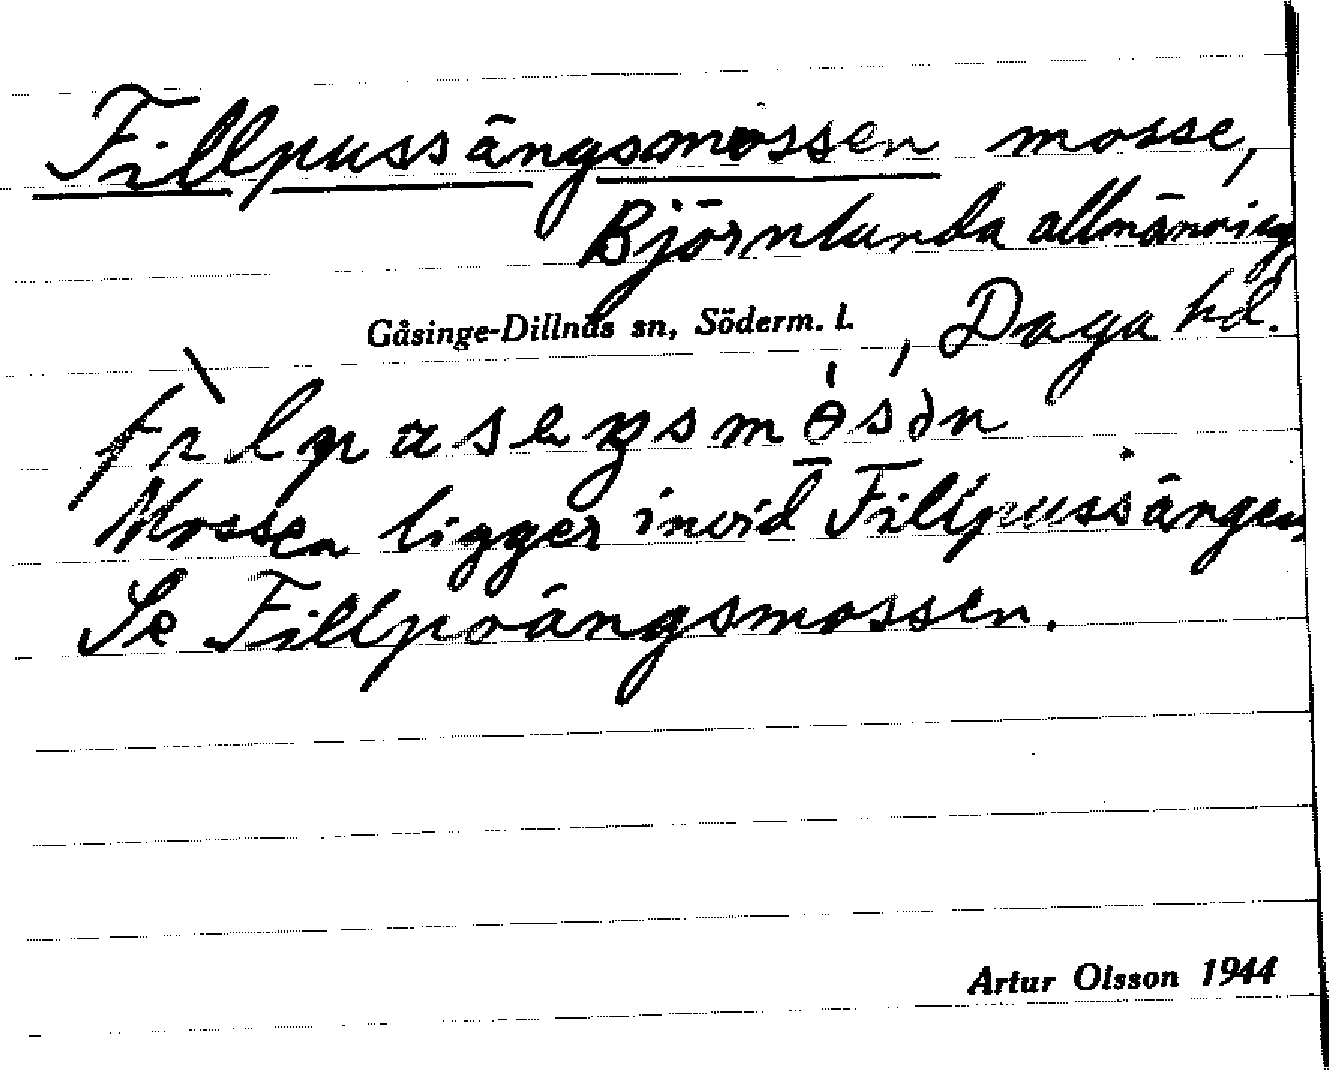 Fillpussängsmossen mosse,
Björnlunda allmänning
Gåsinge-Dillnäs sn, Söderm. l. , Daga hd.
Mossen ligger invid Fillpussängen,
Se Fillpoängsmossen.
Artur Olsson 1944